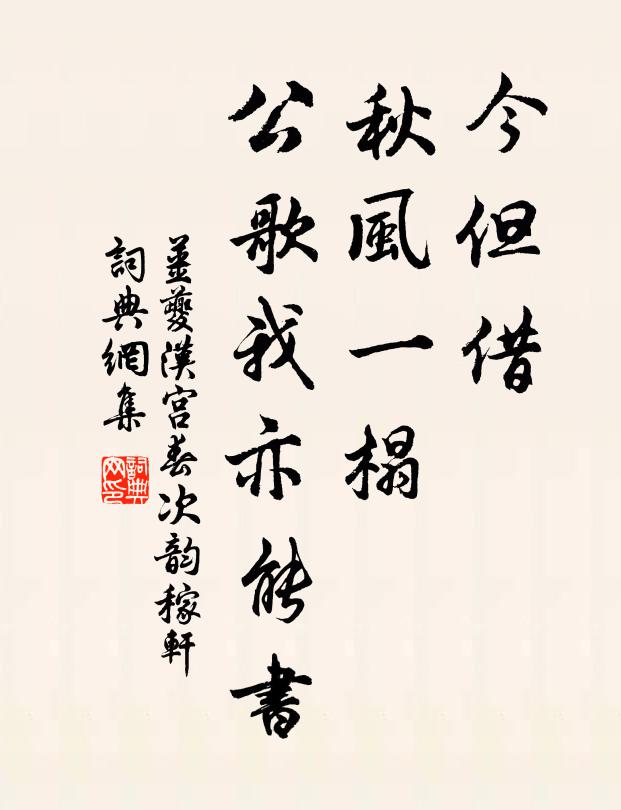 今但借
秋風一榻
公歌我亦能書
薑夔漢宫春次韵稼軒
詞典網集
詞典网印